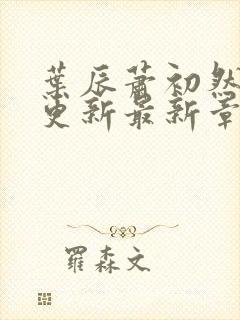 葉辰蕭初然
更新最新章
羅森文